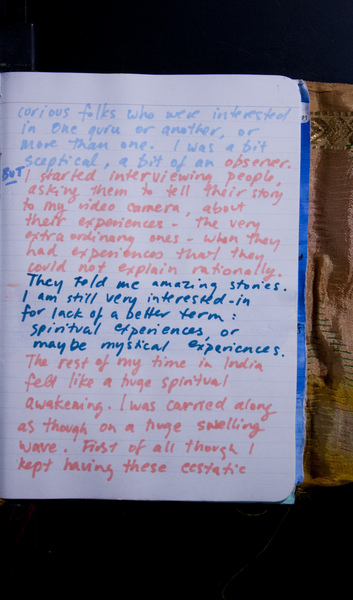 curious folks who were interested
in one guru or another, or
more than one. I was a bit
sceptical, a bit of an observer.
BUT I started interviewing people,
asking them to tell their story
to my video camera, about
their experiences - The very
extraordinary ones - when they
had experiences that they
could not explain rationally.
They told me amazing stories.
I am still very interested - in
for lack of a better term:
spiritual experiences, or
maybe mystical experiences.
The rest of my time in India
felt like a huge spiritual
awakening. I was carried along
as though on a huge swelling
wave. First of all though I
kept having these ecstatic